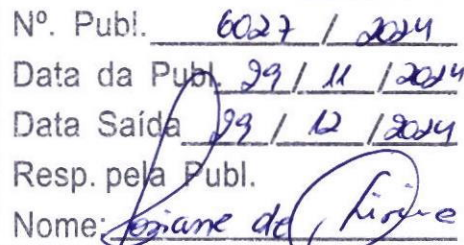 Nº. Publ. 6027 / 2024
Data da Publ. 29 / 11 / 2024
Data Saída 29 / 12 / 2024
Resp. pela Publ.
Nome: Josiane de